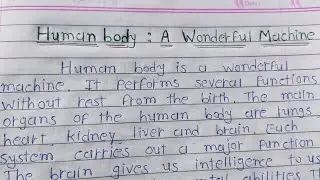 Human body : A Wonderful Machine
Human body is a wonderful
machine. It performs several functions
without rest from the birth. The main
organs of the human body are lungs
heart, kidney, liver and brain. Each
system carries out a major function
The brain gives us intelligence to us
abilities Th